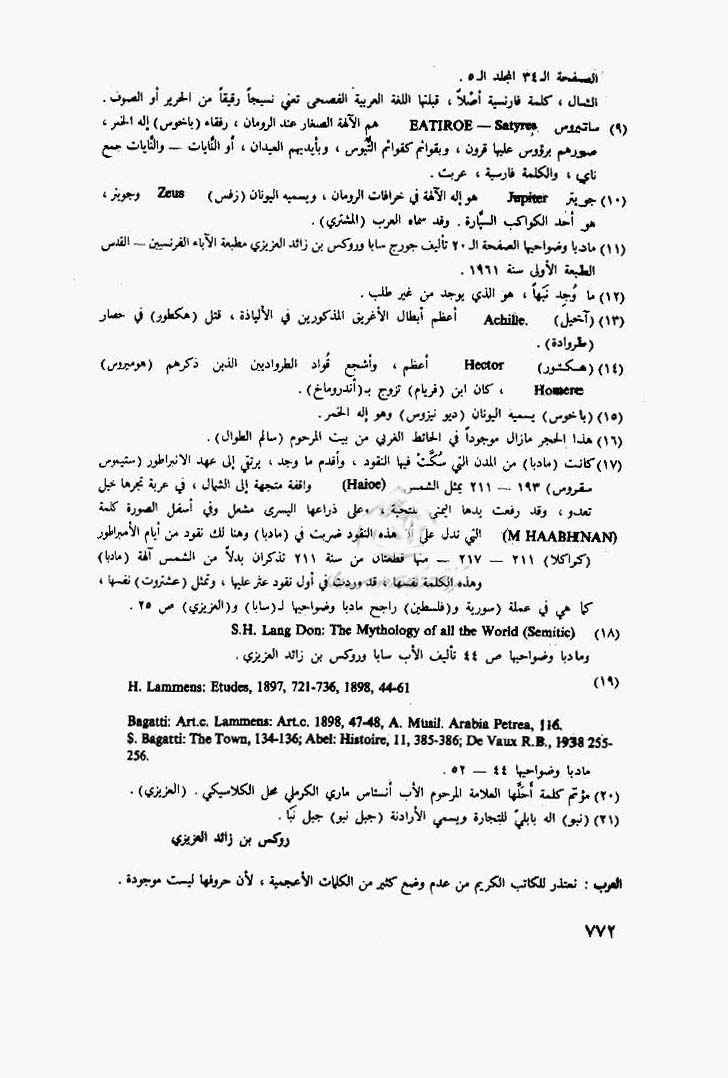 الصفحة الـ ٣٤ المجلد الـ ٥ .
الشال ، كلمة فارنسية أصْلاً ، قبلتها اللغة العربية الفصحى تعني نسيجاً رقيقاً من الحرير أو الصوف .
(٩) ساتيروس EATIROE — Satyres هم الآلهة الصغار عند الرومان ، رفقاء (باخوس) إله الخمر ،
صورهم برؤوس عليها قرون ، وبقوائم كقوائم التُّيوس ، وبأيديهم العيدان ، أو النَّايات — والنَّايات جمع
ناي ، والكلمة فارسية ، عربت .
(١٠) جوبيتر Jupiter هو إله الآلهة في خرافات الرومان ، ويسميه اليونان (زفس) Zeus وجوبتر ،
هو أحد الكواكب السيَّارة . وقد سماه العرب (المشتري) .
(١١) مادبا وضواحيها الصفحة الـ ٢٠ تأليف جورج سابا وروكس بن زائد العزيزي مطبعة الآباء الفرنسيين — القدس
الطبعة الأولى سنة ١٩٦١ .
(١٢) ما وُجِد نَبَهاً ، هو الذي يوجد من غير طلب .
(١٣) (آخيل) Achille. أعظم أبطال الأغريق المذكورين في الألياذة ، قتل (هكطور) في حصار
(طروادة) .
(١٤) (هـكتور) Hector أعظم ، وأشجع قُواد الطرواديين الذين ذكرهم (هوميروس)
Homere ، كان ابن (فريام) تزوج بـ(أندروماخ) .
(١٥) (باخوس) يسميه اليونان (ديو نيزوس) وهو إله الخمر.
(١٦) هذا الحجر مازال موجوداً في الحائط الغربي من بيت المرحوم (سالم الطوال) .
(١٧) كانت (مادبا) من المدن التي سُكَّتْ فيها النقود ، وأقدم ما وجد ، يرتقي إلى عهد الانبراطور (ستيموس
سقروس) ١٩٣ — ٢١١ يمثل الشمس (Haioe) واقفة متجهة إلى الشمال ، في عربة تجرها خيل
تعدو ، وقد رفعت يدها اليمنى وعلى ذراعها اليسرى مشعل وفي أسفل الصورة كلمة
(M HAABHNAN) التي تدل على أنَّ هذه النقود ضربت في (مادبا) وهنا لك نقود من أيام الأمبراطور
(كواكلا) ٢١١ — ٢١٧ — منها قطعتان من سنة ٢١١ تذكران بدلاً من الشمس آلهة (مادبا)
وهذه الكلمة نفسها ، قد وردت في أول نقود عثر عليها ، وتمثل (عشتروت) نفسها ،
كما هي في عملة (سورية و(فلسطين) راجع مادبا وضواحيها لـ(سابا) و(العزيزي) ص ٢٥ .
(١٨) S.H. Lang Don: The Mythology of all the World (Semitic)
ومادبا وضواحيها ص ٤٤ تأليف الأب سابا وروكس بن زائد العزيزي .
(١٩)
H. Lammens: Etudes, 1897, 721-736, 1898, 44-61
Bagatti: Art.c. Lammens: Art.c. 1898, 47-48, A. Musil. Arabia Petrea, 116.
S. Bagatti: The Town, 134-136; Abel: Histoire, 11, 385-386; De Vaux R.B., 1938 255-
256.
مادبا وضواحيها ٤٤ — ٥٢ .
(٢٠) مؤتم كلمة أَحلّها العلامة المرحوم الأب أنستاس ماري الكرملي محل الكلاسيكي . (العزيزي) .
(٢١) (نبو) اله بابليّ للتجارة ويسمي الأرادنة (جبل نبو) جبل نَبَا .
روكس بن زائد العزيزي
العرب : نعتذر للكاتب الكريم من عدم وضع كثير من الكلمات الأعجمية ، لأن حروفها ليست موجودة .
٧٧٢